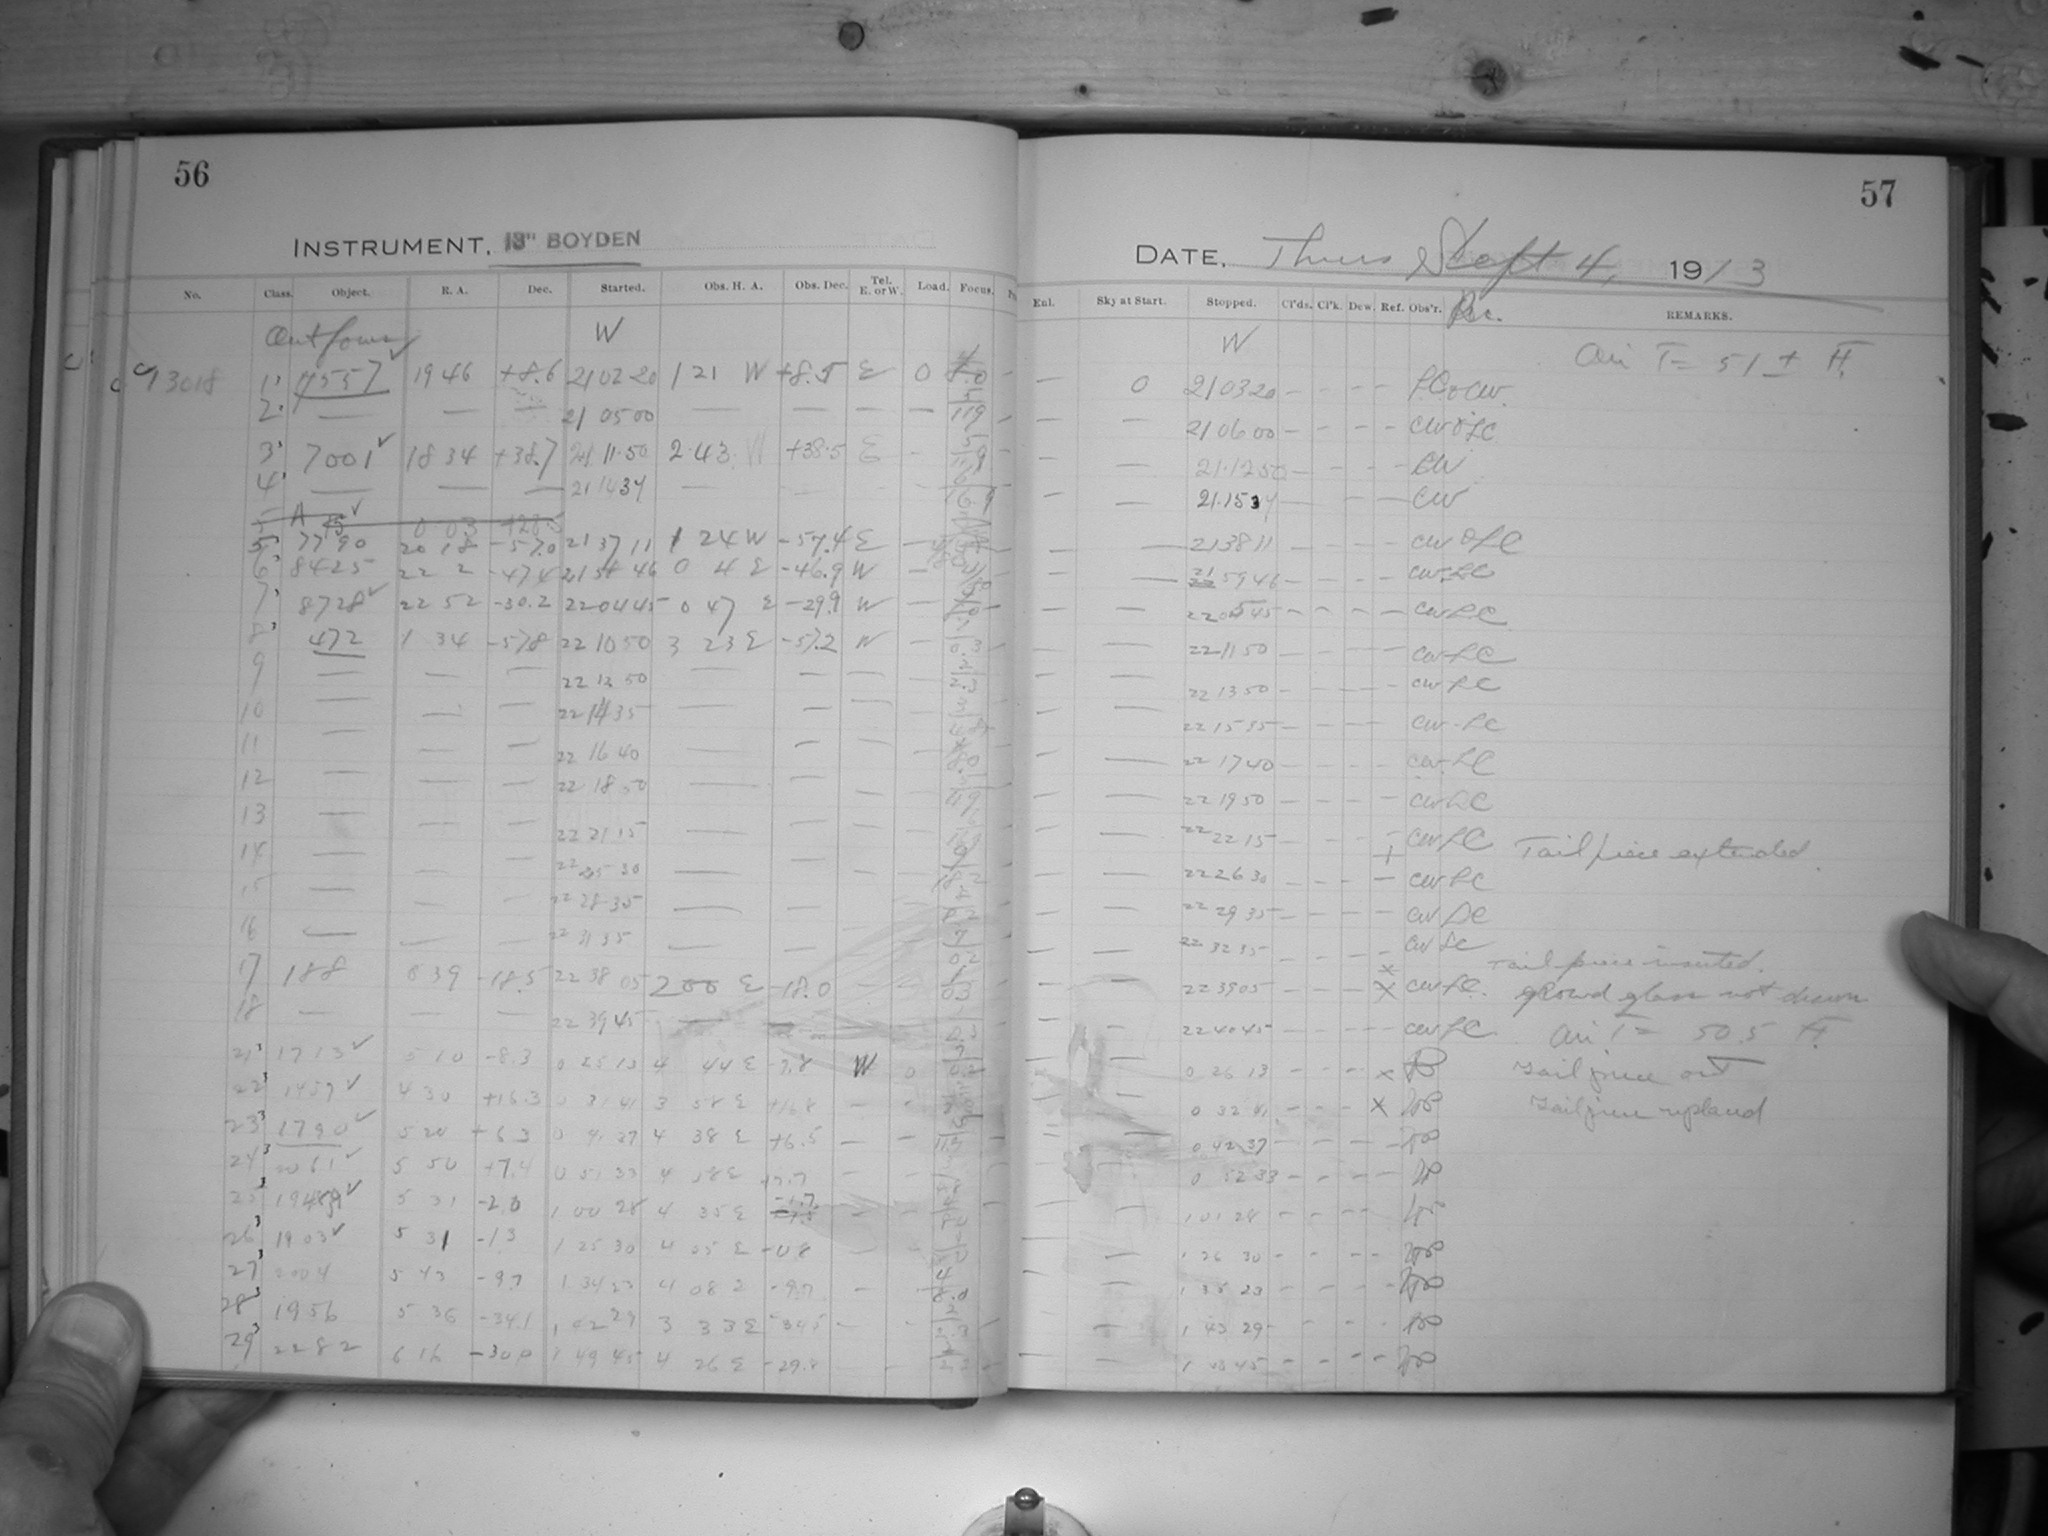 56
57
INSTRUMENT, 13" BOYDEN
DATE, Thurs Sept 4, 1913
No. Class. Object. R. A. Dec. Started. Obs. H. A. Obs. Dec. Tel. E. or W. Load. Focus.
Enl. Sky at Start. Stopped. Cl'ds. Cl'k. Dew. Ref. Obs'r. Rec. REMARKS.
W W
Air T = 51 ± F.
C 13018 1 7557 19 46 +8.6 21 02 20 1 21 W +8.5 E 0 — 0 21 03 20 - - - -
2 — — — 21 05 00 — — — — — — 21 06 00 - - - - CW & LC
3 7001 18 34 +38.7 21 11 50 2 43 W +38.5 E — — 21 12 50 - - - - CW
4 — — — 21 14 34 — — — 21 15 34 — — — CW
A 15 0 03 +28.5
5 7790 20 18 -57.0 21 37 11 1 24 W -57.4 E — — — 21 38 11 - - - - CW & LC
6 8425 22 2 -47.4 21 58 46 0 4 E -46.9 W — — — 21 59 46 - - - - CW LC
7 8728 22 52 -30.2 22 04 45 0 47 E -29.9 W — — — 22 05 45 - - - - CW LC
8 472 1 34 -57.8 22 10 50 3 23 E -57.2 W — — 22 11 50 - - - - CW LC
9 — — — 22 12 50 — — — — — — 22 13 50 - - - - CW LC
10 — — — 22 14 35 — — — — — — 22 15 35 - - - - CW LC
11 — — — 22 16 40 — — — — — — 22 17 40 - - - - CW LC
12 — — — 22 18 50 — — — — — — 22 19 50 - - - - CW LC
13 — — — 22 21 15 — — — — — — 22 22 15 - - - - CW LC Tail piece extended
14 — — — 22 25 30 — — — — — 22 26 30 - - - - CW LC
15 — — — 22 28 35 — — — — — 22 29 35 - - - - CW LC
16 — — — 22 31 35 — — — — — 22 32 35 - - - - CW LC
Tail piece inserted.
17 188 0 39 -18.5 22 38 05 2 00 E -18.0 — — — — 22 39 05 - - - x CW LC. ground glass not drawn
18 — — — 22 39 45 — — — — — — 22 40 45 - - - - CW LC Air T = 50.5 F.
21 1713 5 10 -8.3 0 25 13 4 44 E -7.8 W 0 — — 0 26 13 - - - x Tail piece out
22 1457 4 30 +16.3 0 31 41 3 58 E +16.8 — — — — 0 32 41 - - - x Tail piece replaced
23 1790 5 20 +6.3 0 41 37 4 38 E +6.5 — — — — 0 42 37 - - - -
24 2061 5 50 +7.4 0 51 33 4 58 E +7.7 — — — — 0 52 33 - - - -
25 1948 5 31 -2.0 1 00 28 4 35 E -1.7 — — — — 1 01 28 - - - -
26 1903 5 31 -1.3 1 25 30 4 05 E -0.8 — — — — 1 26 30 - - - -
27 2004 5 43 -9.7 1 34 23 4 08 E -9.7 — — — — 1 35 23 - - - -
28 1956 5 36 -34.1 1 42 29 3 33 E -34.5 — — — 1 43 29 - - - -
29 2282 6 16 -30.0 1 49 45 4 26 E -29.8 — — 1 50 45 - - - -